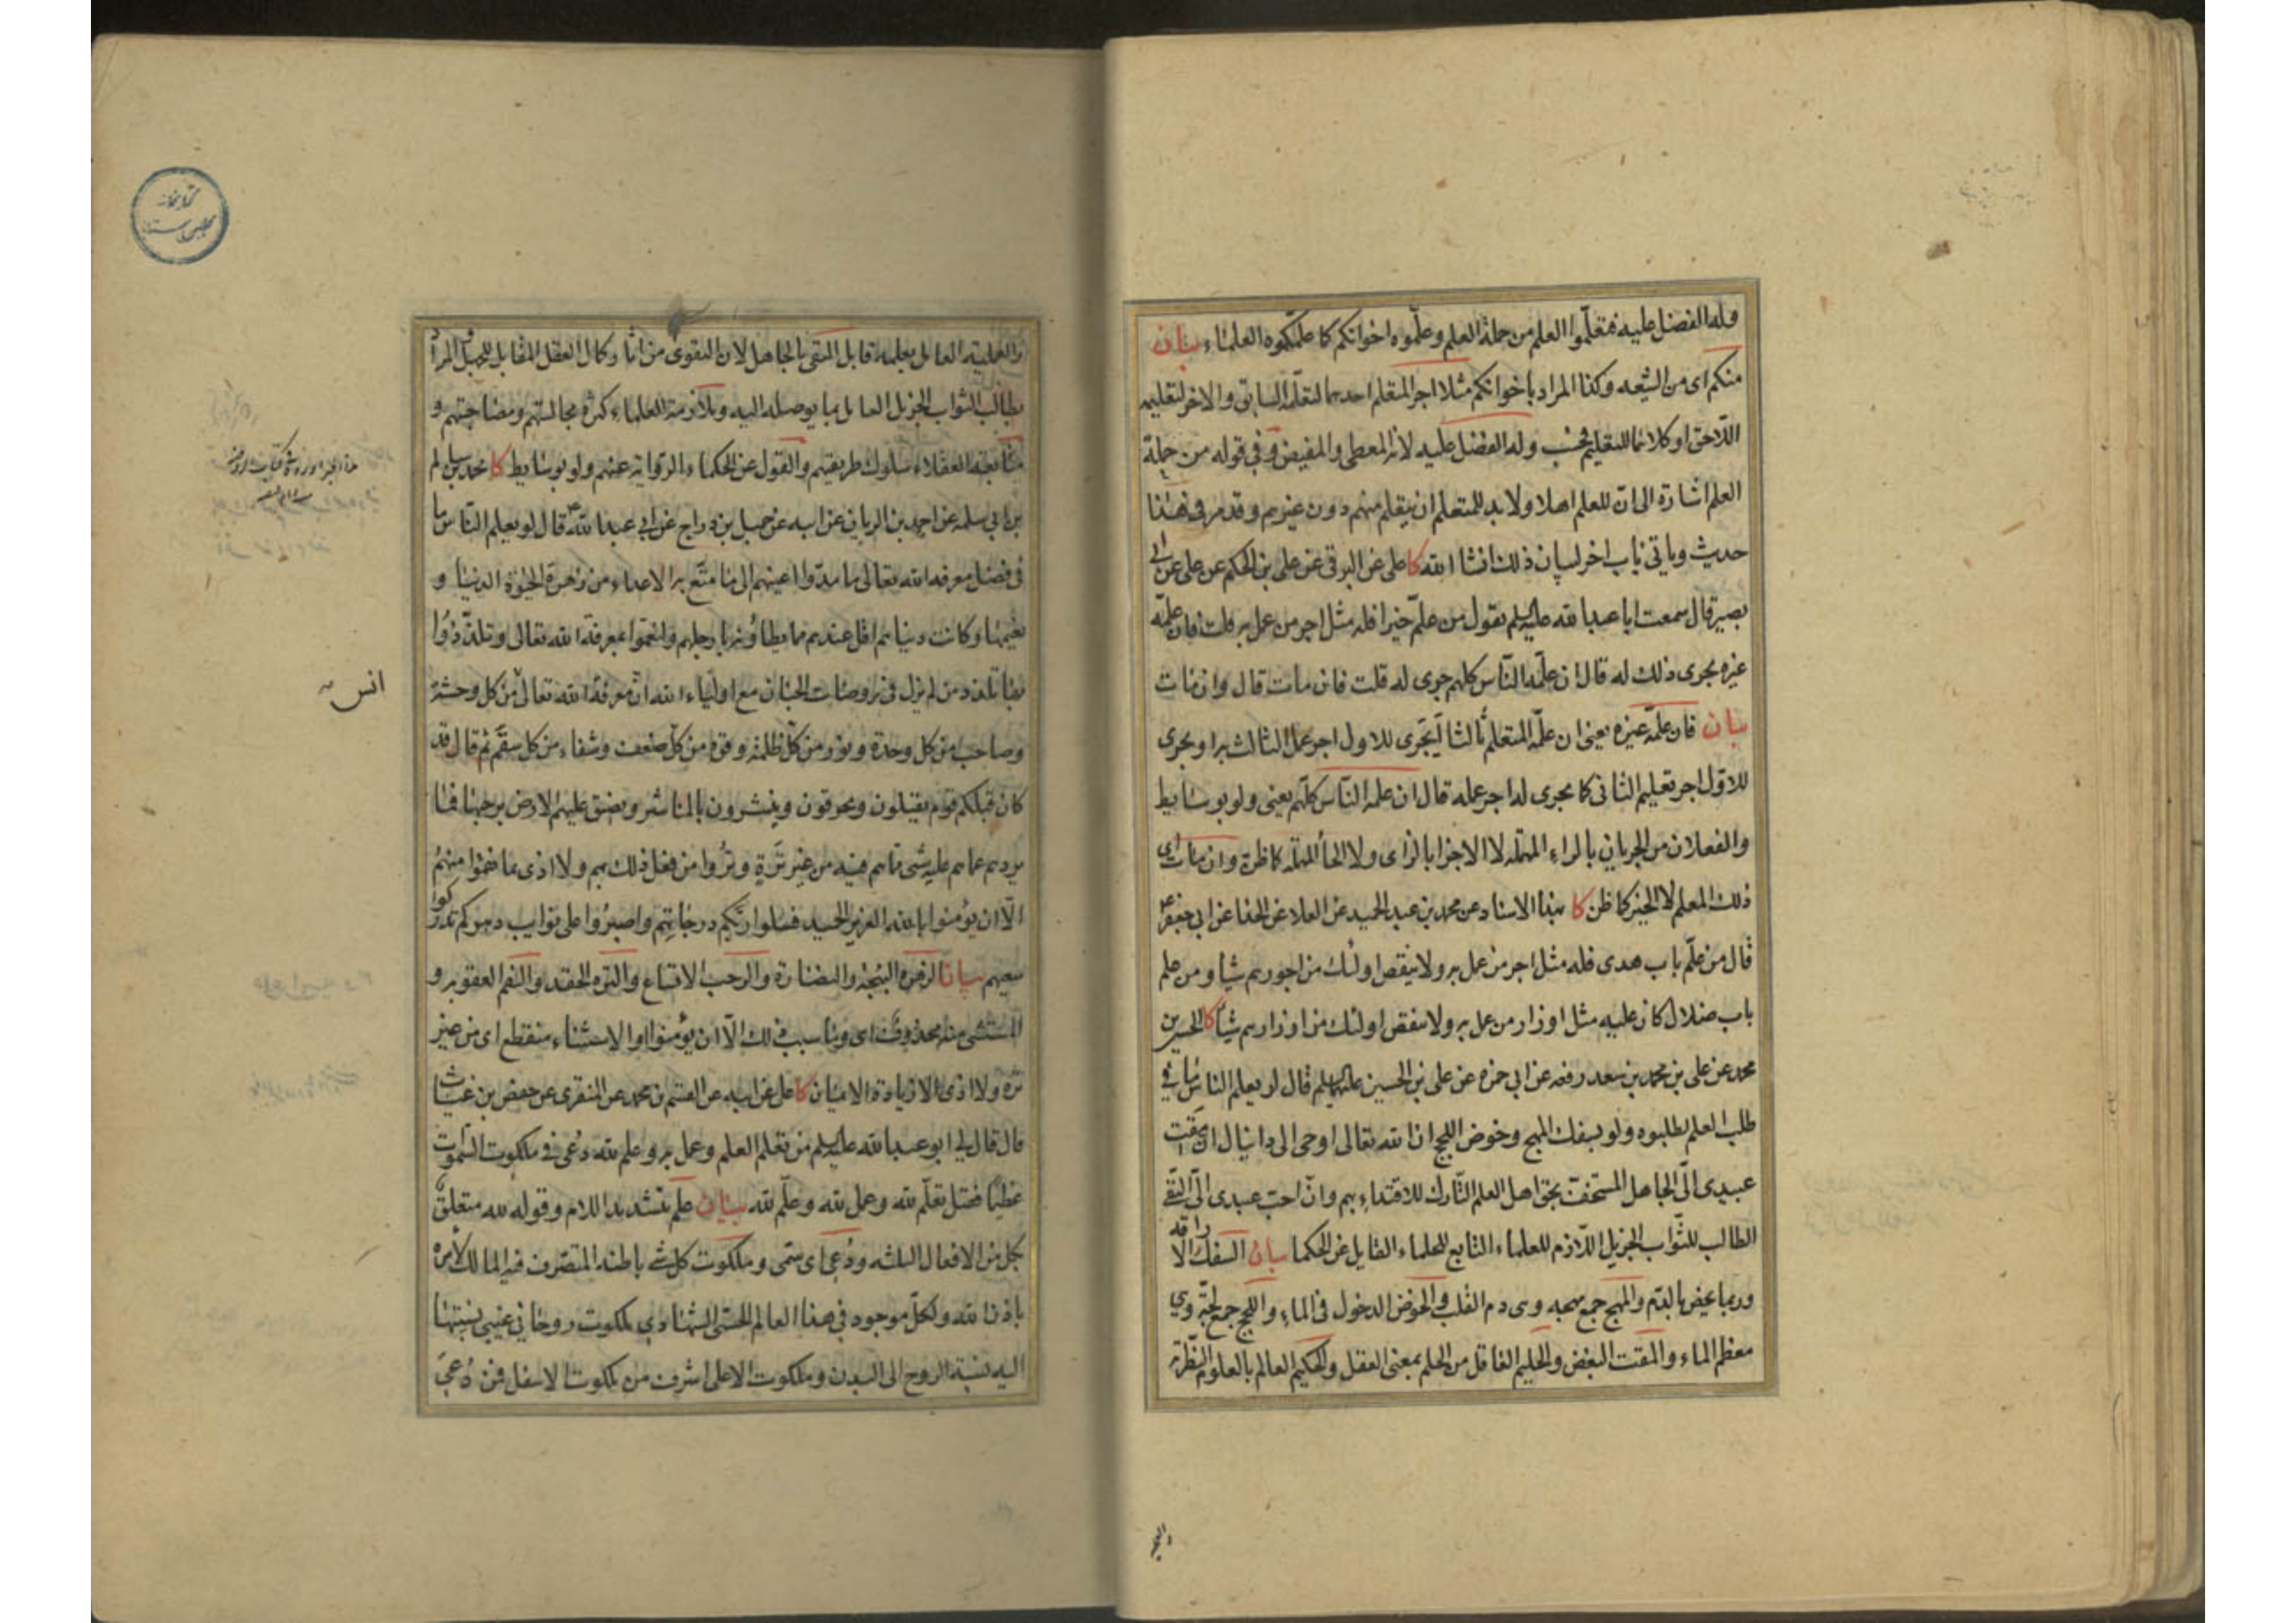 وله الفضل عليه فتعلّموا العلم من حملة العلم وعلّموه اخوانكم كما علّمكموه العلماء بيان
منكم اى من الشيعه وكذا المراد باخوانكم مثلا اجر المتعلم احدهما لتعلّمه السابق والاخر لتعليمه
اللاحق او كلاهما للتعليم فحسب وله الفضل عليه لانه المعطى والمفيض وفى قوله من حملة
العلم اشارة الى ان للعلم اهلا ولا بد للمتعلم ان يتعلم منهم دون غيرهم وقد مر فى هذا
حديث وياتى باب اخر لبيان ذلك انشا الله كا على عن البرقى عن على بن الحكم عن على عن ابى
بصير قال سمعت ابا عبد الله عليه السلم يقول من علّم خيرا فله مثل اجر من عمل به قلت فان علّمه
غيره يجرى ذلك له قال ان علّمه النّاس كلهم جرى له قلت فان مات قال وان مات
بيان فان علّمه غيره يعنى ان علّمه المتعلم ثالثا ليجرى للاول اجر عمل الثالث به او يجرى
للاوّل اجر تعليم الثانى كما يجرى له اجر عمله قال ان علمه النّاس كلّهم يعنى ولو بوسايط
والفعلان من الجريان بالراء المهمله لا الاجزا بالزاى ولا الحاء المهمله كما ظن وان مات اى
ذلك المعلم لا الخير كما ظن كا بهذا الاسناد عن محمد بن عبد الحميد عن العلا عن الحذا عن ابى جعفر ع
قال من علّم باب هدى فله مثل اجر من عمل به ولا ينقص اولئك من اجورهم شيا ومن علم
باب ضلال كان عليه مثل اوزار من عمل به ولا ينقص اولئك من اوزارهم شيئا كا الحسين بن
محمد عن على بن محمد بن سعد رفعه عن ابى حمزه عن على بن الحسين عليهما السلم قال لو يعلم الناس ما فى
طلب العلم لطلبوه ولو بسفك المهج وخوض اللجج ان الله تعالى اوحى الى دانيال ان امقت
عبيدى الىّ الجاهل المستخفّ بحق اهل العلم التّارك للاقتداء بهم وانّ احب عبيدى الىّ التقى
الطالب للثّواب الجزيل اللازم للعلماء التابع للحلماء القابل عن الحكما بيان السفك الاراقه
وربما يخص بالدّم والمهج جمع مهجه وهى دم القلب والخوض الدخول فى الماء واللجج جمع لجّه وهى
معظم الماء والمقت البغض والحليم العاقل من الحلم بمعنى العقل والحكيم العالم بالعلوم النظريّه
والعمليه العامل بعلمه قابل المتقى بالجاهل لان التقوى من اثار كمال العقل المقابل للجهل والمراد
بطالب الثواب الجزيل العامل بما يوصله اليه وبملازمة العلماء كثرة مجالستهم ومصاحبتهم و
متابعه العقلاء سلوك طريقتهم والقول عن الحكماء الروايه عنهم ولو بوسايط كا محمد بن سالم
بن ابى سلمه عن احمد بن الريان عن ابيه عن جميل بن دراج عن ابى عبد الله ع قال لو يعلم النّاس ما
فى فضل معرفه الله تعالى ما مدّوا اعينهم الى ما متّع به الاعداء من زهرة الحيوة الدنيا و
نعيمها وكانت دنياهم اقل عندهم مما يطاؤنه بارجلهم ولنعموا بمعرفة الله تعالى وتلذّذوا
بها تلذذ من لم يزل فى روضات الجنان مع اولياء الله ان معرفة الله تعالى من كل وحشة
وصاحب من كل وحدة ونور من كلّ ظلمة وقوة من كلّ ضعف وشفاء من كل سقم ثم قال قد
كان قبلكم قوم يقتلون ويحرقون وينشرون بالمناشير ويضيق عليهم الارض برحبها فما
يردهم عما هم عليه شى مما هم فيه من غير تَرَةٍ وتروا من فعل ذلك بهم ولا اذى بما نقموا منهم
الّا ان يؤمنوا بالله العزيز الحميد فسلوا ربّكم درجاتهم واصبروا على نوايب دهركم تدركوا
سعيهم بيان الزهرة البهجة والنضارة والرحب الاتساع والتره الحقد والنقم العقوبه و
المستثنى منه محذوف اى وما سبب ذلك الّا ان يؤمنوا او الاستثناء منقطع اى من غير
تره ولا اذى الا زيادة الايمان كا على عن ابيه عن القسم بن محمد عن المنقرى عن حفص بن غياث
قال قال لى ابو عبد الله عليه السلم من تعلم العلم وعمل به وعلم لله دُعى فى ملكوت السّموات
عظيما فقيل تعلّم لله وعمل لله وعلّم لله بيان علّم بتشديد اللام وقوله لله متعلق
بكل من الافعال الثلثه ودُعى اى سمّى وملكوت كل شى باطنه المتصرف فيه المالك لامره
باذن الله ولكلّ موجود فى هذا العالم الحسّى الشهادى ملكوت روحانى غيبى نسبتها
اليه نسبة الروح الى البدن وملكوت الاعلى اشرف من ملكوت الاسفل فمن دُعى
انس